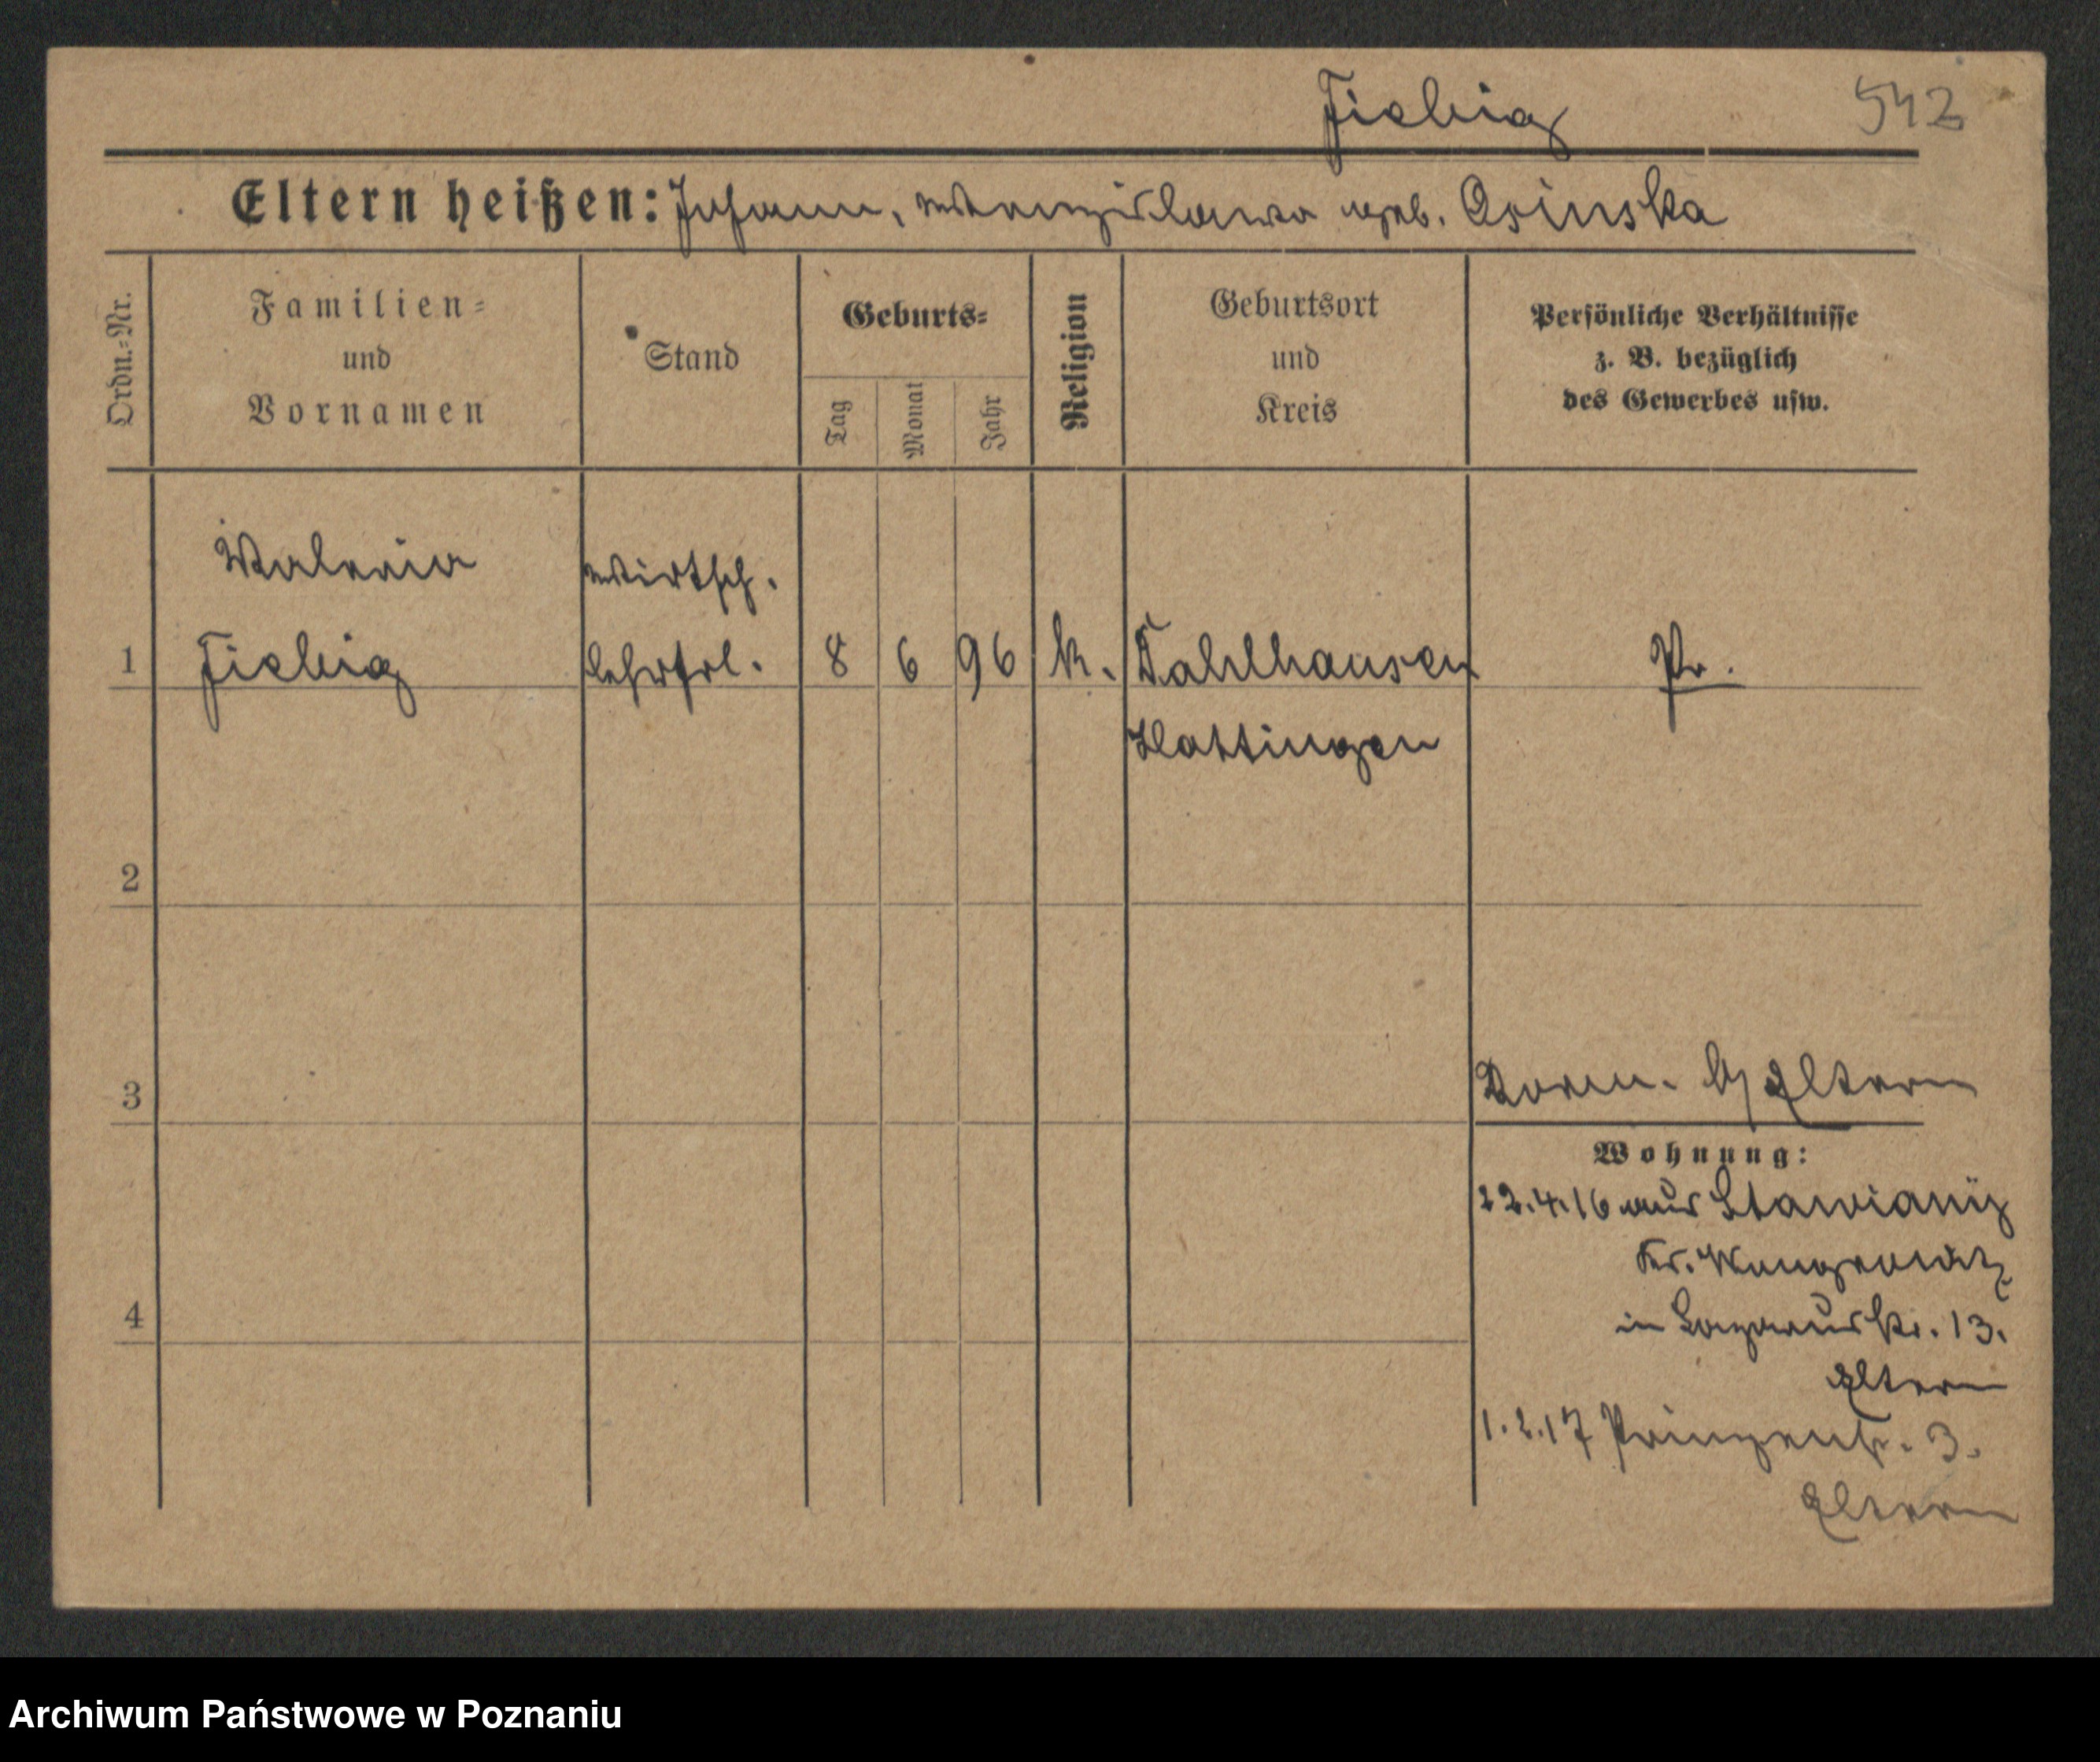 Fiebig 542
Eltern heißen: Johann, Wenzislawa geb. Osinska
Ordn.-Nr.
Familien- und Vornamen
Stand
Geburts-
Tag Monat Jahr
Religion
Geburtsort und Kreis
Persönliche Verhältnisse
z. B. bezüglich
des Gewerbes usw.
Waleria Wirtsch.
1 Fiebig Lehrfrl. 8 6 96 k. Dahlhausen Pr.
Hattingen
2
3 Eltern
Wohnung:
22.4.16 aus Stawiany
Kr. Wongrowitz
in Lazarusstr. 13.
4 Eltern
1.2.17 Prinzenstr. 3.
Eltern
Archiwum Państwowe w Poznaniu